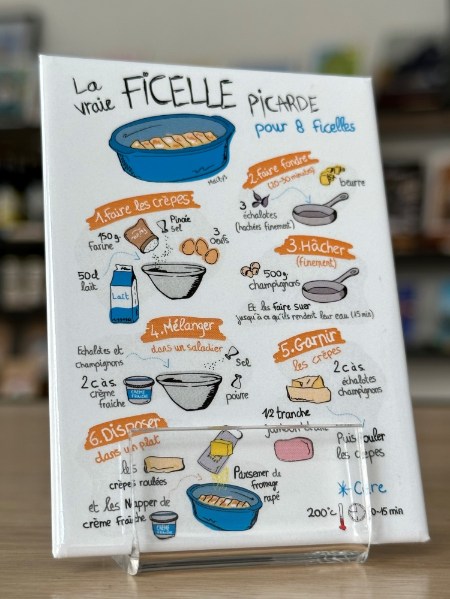 La
vraie FICELLE PICARDE
pour 8 ficelles
Maitys
1.Faire les crêpes
150g
farine
Pincée
sel
3
oeufs
50cl
lait
Lait
2.Faire fondre
(20-30 minutes)
beurre
3
échalotes
(hachées finement)
3.Hâcher
(finement)
500g
champignons
Et les faire suer
jusqu'à ce qu'ils rendent leur eau (15 min)
4.Mélanger
dans un saladier
Echalotes et
champignons
2 c à s
crème
fraîche
CRÈME
FRAÎCHE
Sel
poivre
5.Garnir
les crêpes
2 c à s
échalotes
champignons
1/2 tranche
jambon blanc
Puis rouler
les crêpes
6.Disposer
dans un plat
les
crêpes roulées
et les Napper de
crème fraîche
CRÈME
FRAÎCHE
Parsemer de
fromage
rapé
Cuire
200°c
10-15 min